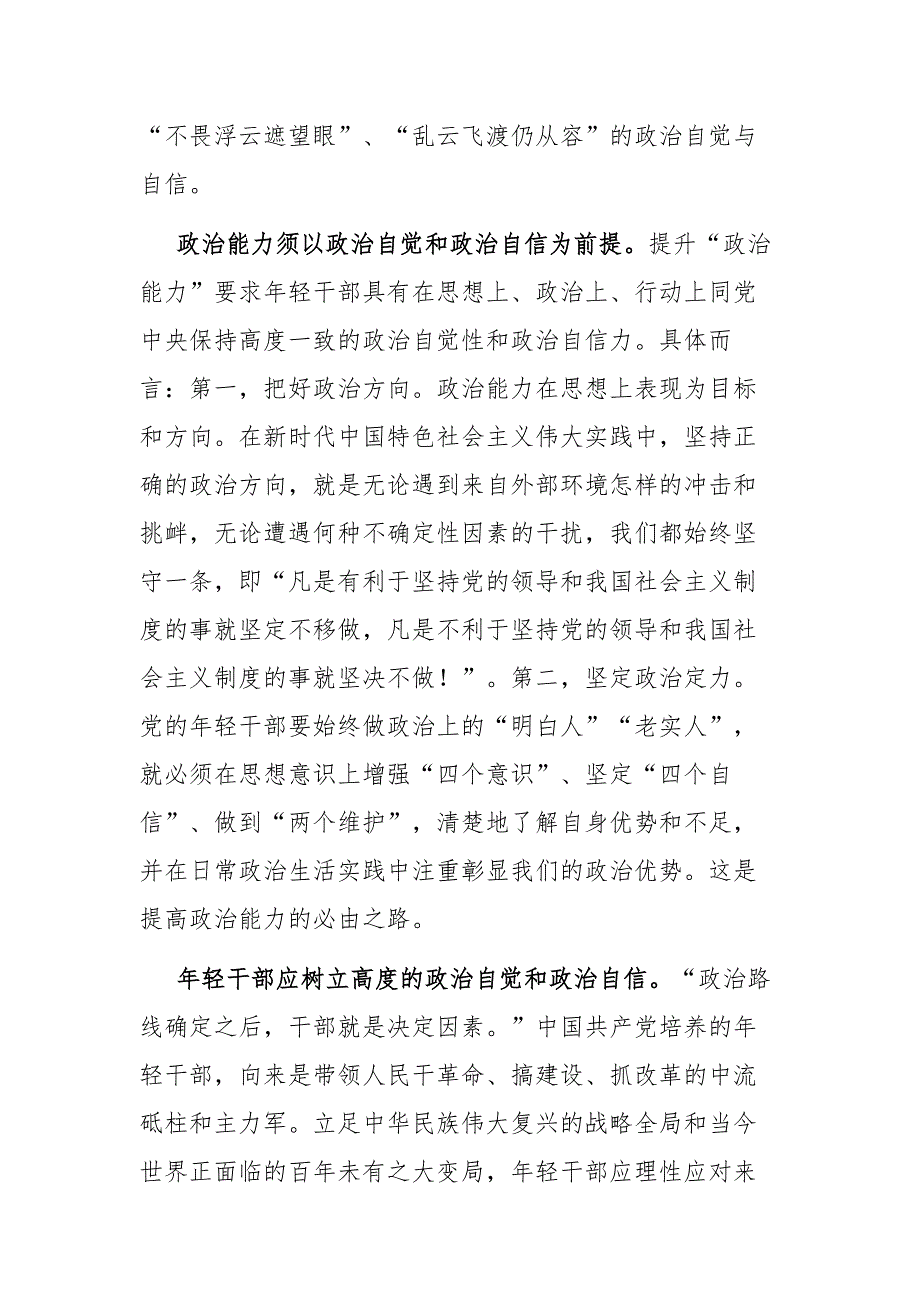 “不畏浮云遮望眼”、“乱云飞渡仍从容”的政治自觉与
自信。
政治能力须以政治自觉和政治自信为前提。提升“政治
能力”要求年轻干部具有在思想上、政治上、行动上同党
中央保持高度一致的政治自觉性和政治自信力。具体而
言：第一，把好政治方向。政治能力在思想上表现为目标
和方向。在新时代中国特色社会主义伟大实践中，坚持正
确的政治方向，就是无论遇到来自外部环境怎样的冲击和
挑衅，无论遭遇何种不确定性因素的干扰，我们都始终坚
守一条，即“凡是有利于坚持党的领导和我国社会主义制
度的事就坚定不移做，凡是不利于坚持党的领导和我国社
会主义制度的事就坚决不做！”。第二，坚定政治定力。
党的年轻干部要始终做政治上的“明白人”“老实人”，
就必须在思想意识上增强“四个意识”、坚定“四个自
信”、做到“两个维护”，清楚地了解自身优势和不足，
并在日常政治生活实践中注重彰显我们的政治优势。这是
提高政治能力的必由之路。
年轻干部应树立高度的政治自觉和政治自信。“政治路
线确定之后，干部就是决定因素。”中国共产党培养的年
轻干部，向来是带领人民干革命、搞建设、抓改革的中流
砥柱和主力军。立足中华民族伟大复兴的战略全局和当今
世界正面临的百年未有之大变局，年轻干部应理性应对来